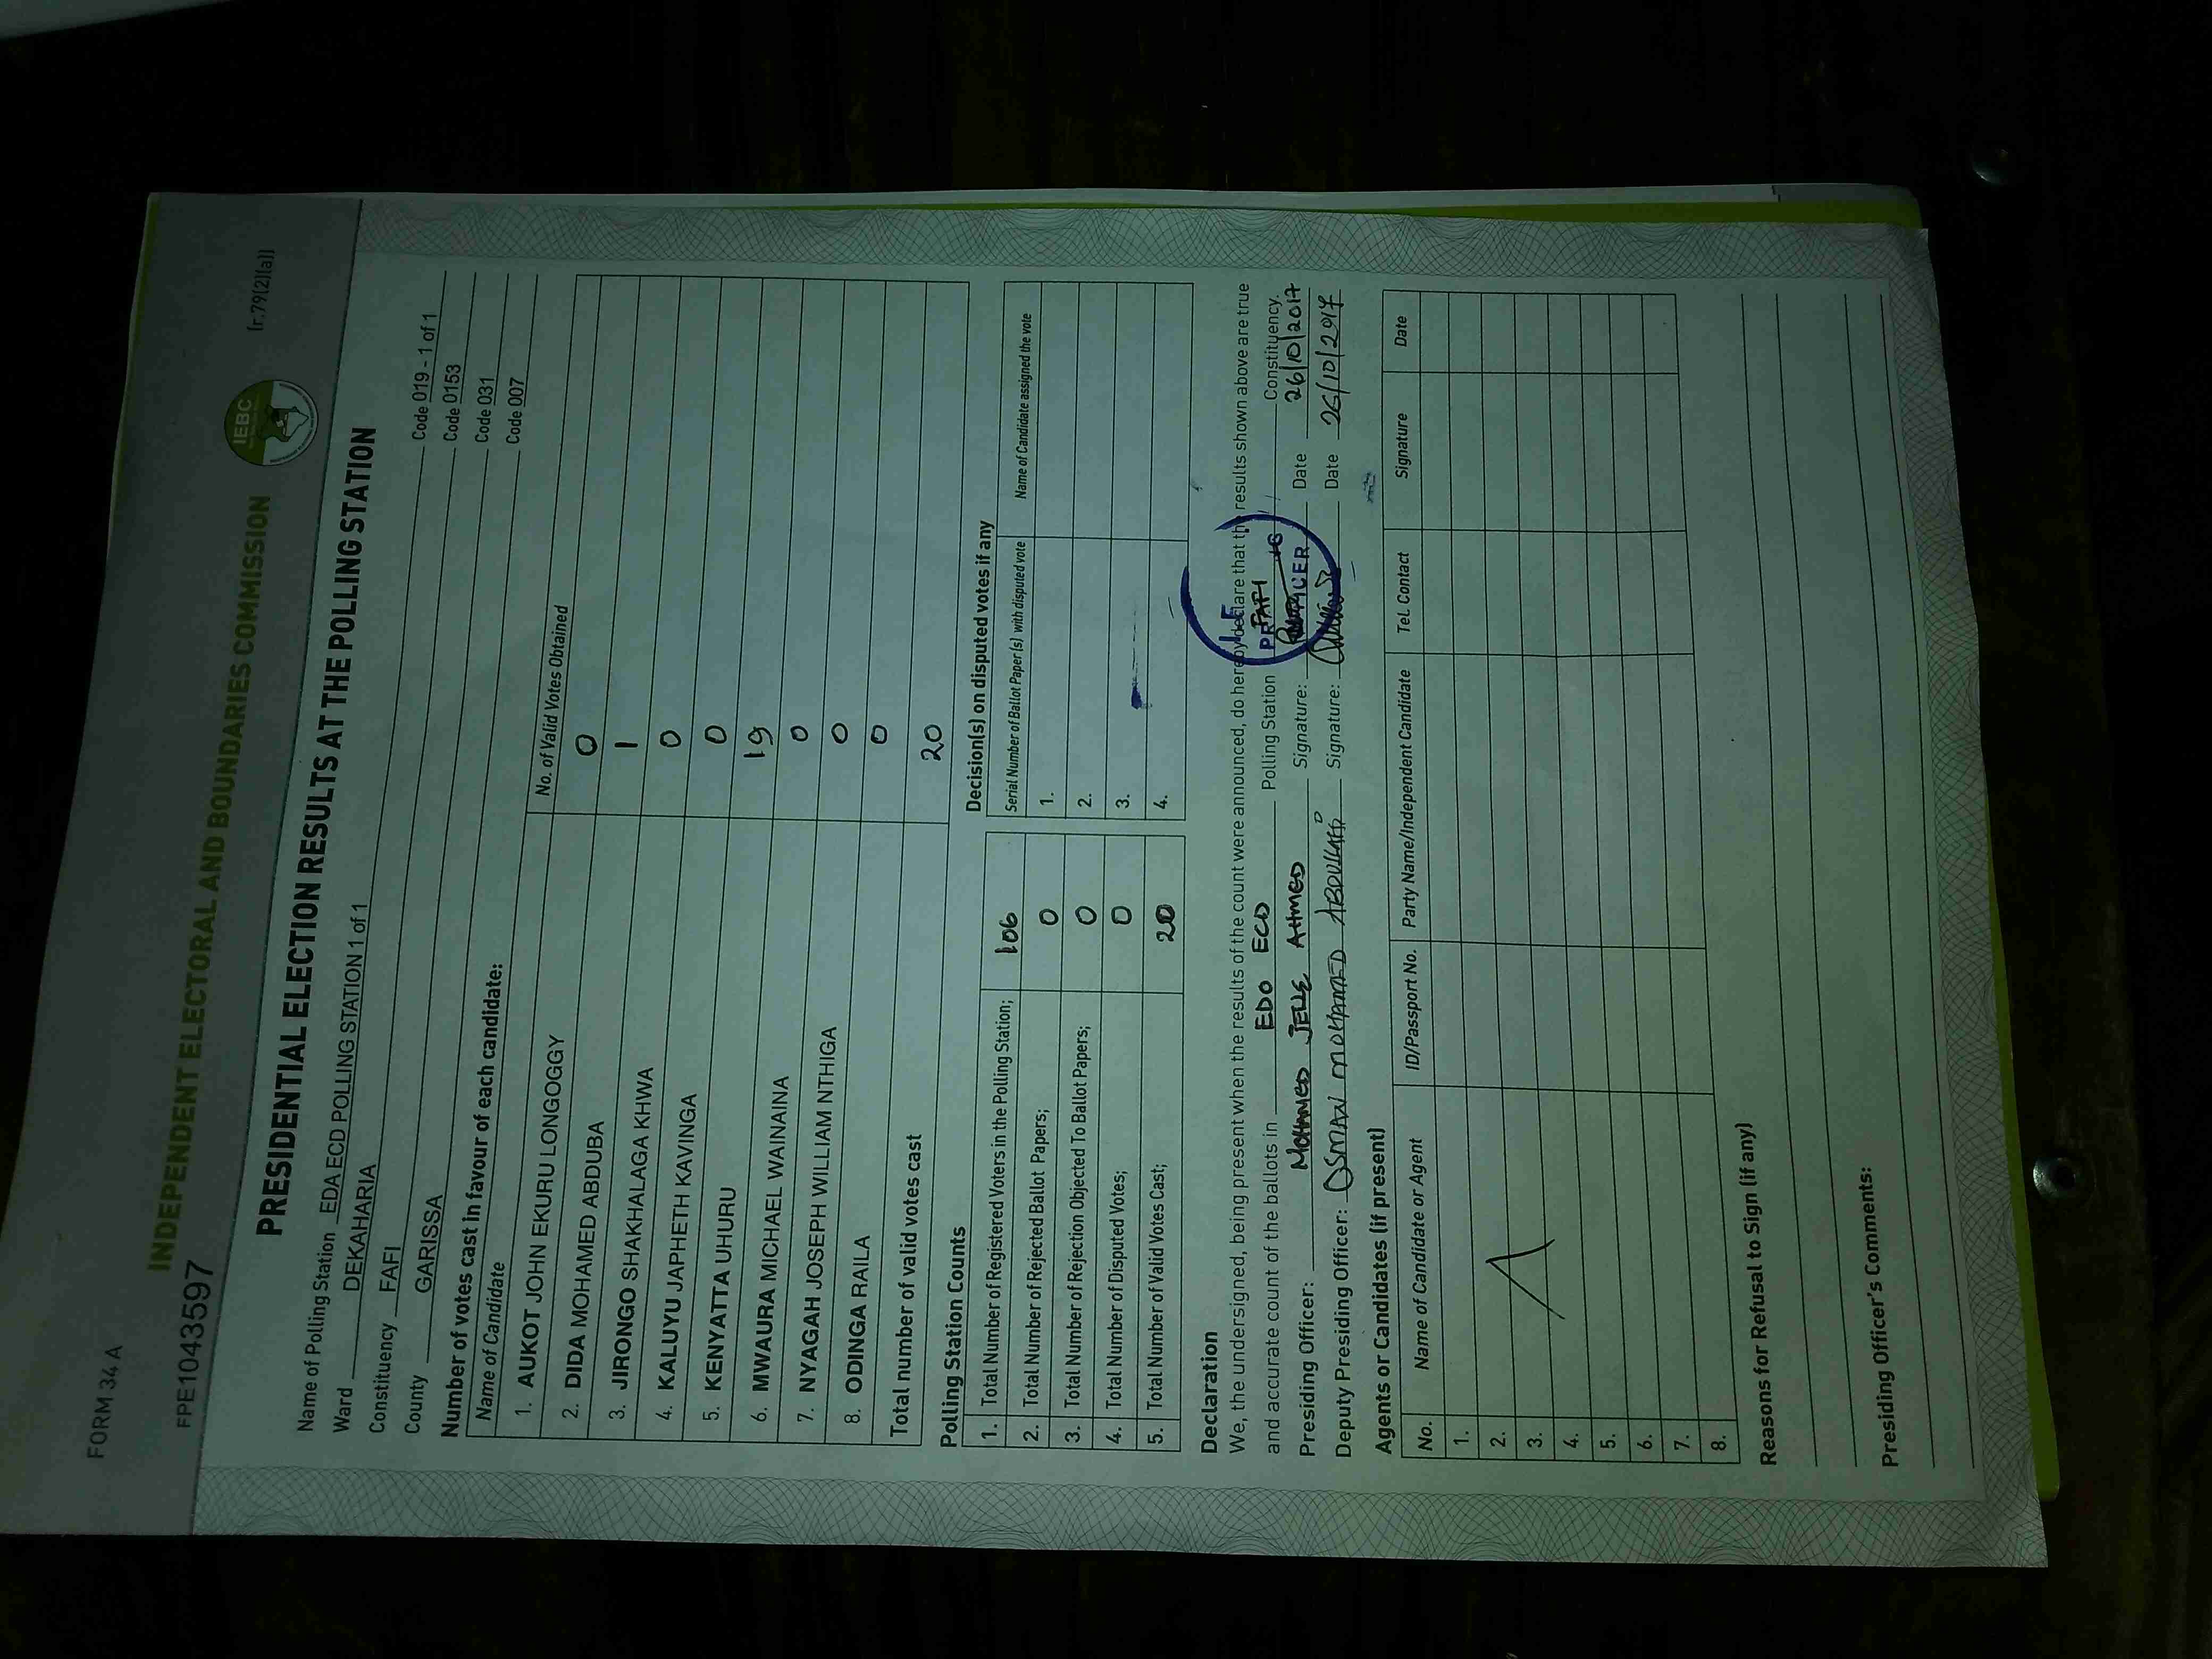 FORM 34 A
INDEPENDENT ELECTORAL AND BOUNDARIES COMMISSION
IEBC
(r.79(2)(a))
FPE1043597
PRESIDENTIAL ELECTION RESULTS AT THE POLLING STATION
Name of Polling Station EDA ECD POLLING STATION 1 of 1 Code 019 - 1 of 1
Ward DEKAHARIA Code 0153
Constituency FAFI Code 031
County GARISSA Code 007
Number of votes cast in favour of each candidate:
Name of Candidate No. of Valid Votes Obtained
1. AUKOT JOHN EKURU LONGOGGY 0
2. DIDA MOHAMED ABDUBA 1
3. JIRONGO SHAKHALAGA KHWA 0
4. KALUYU JAPHETH KAVINGA 0
5. KENYATTA UHURU 19
6. MWAURA MICHAEL WAINAINA 0
7. NYAGAH JOSEPH WILLIAM NTHIGA 0
8. ODINGA RAILA 0
Total number of valid votes cast 20
Polling Station Counts
1. Total Number of Registered Voters in the Polling Station; 106
2. Total Number of Rejected Ballot Papers; 0
3. Total Number of Rejection Objected To Ballot Papers; 0
4. Total Number of Disputed Votes; 0
5. Total Number of Valid Votes Cast; 20
Decision(s) on disputed votes if any
Serial Number of Ballot Paper(s) with disputed vote Name of Candidate assigned the vote
1.
2.
3.
4.
Declaration
We, the undersigned, being present when the results of the count were announced, do hereby declare that the results shown above are true
and accurate count of the ballots in EDO ECD Polling Station FAFI Constituency.
Presiding Officer: MOHAMED JELLE AHMED Signature: Date 26/10/2017
Deputy Presiding Officer: OSMAN MOHAMED ABDULLAHI Signature: Date 26/10/2017
Agents or Candidates (if present)
No. Name of Candidate or Agent ID/Passport No. Party Name/Independent Candidate Tel. Contact Signature Date
1.
2.
3.
4.
5.
6.
7.
8.
Reasons for Refusal to Sign (if any)
Presiding Officer's Comments: